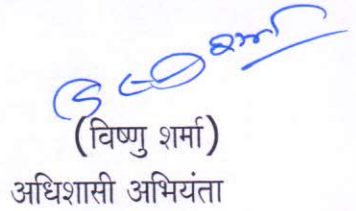 शर्मा
(विष्णु शर्मा)
अधिशासी अभियंता